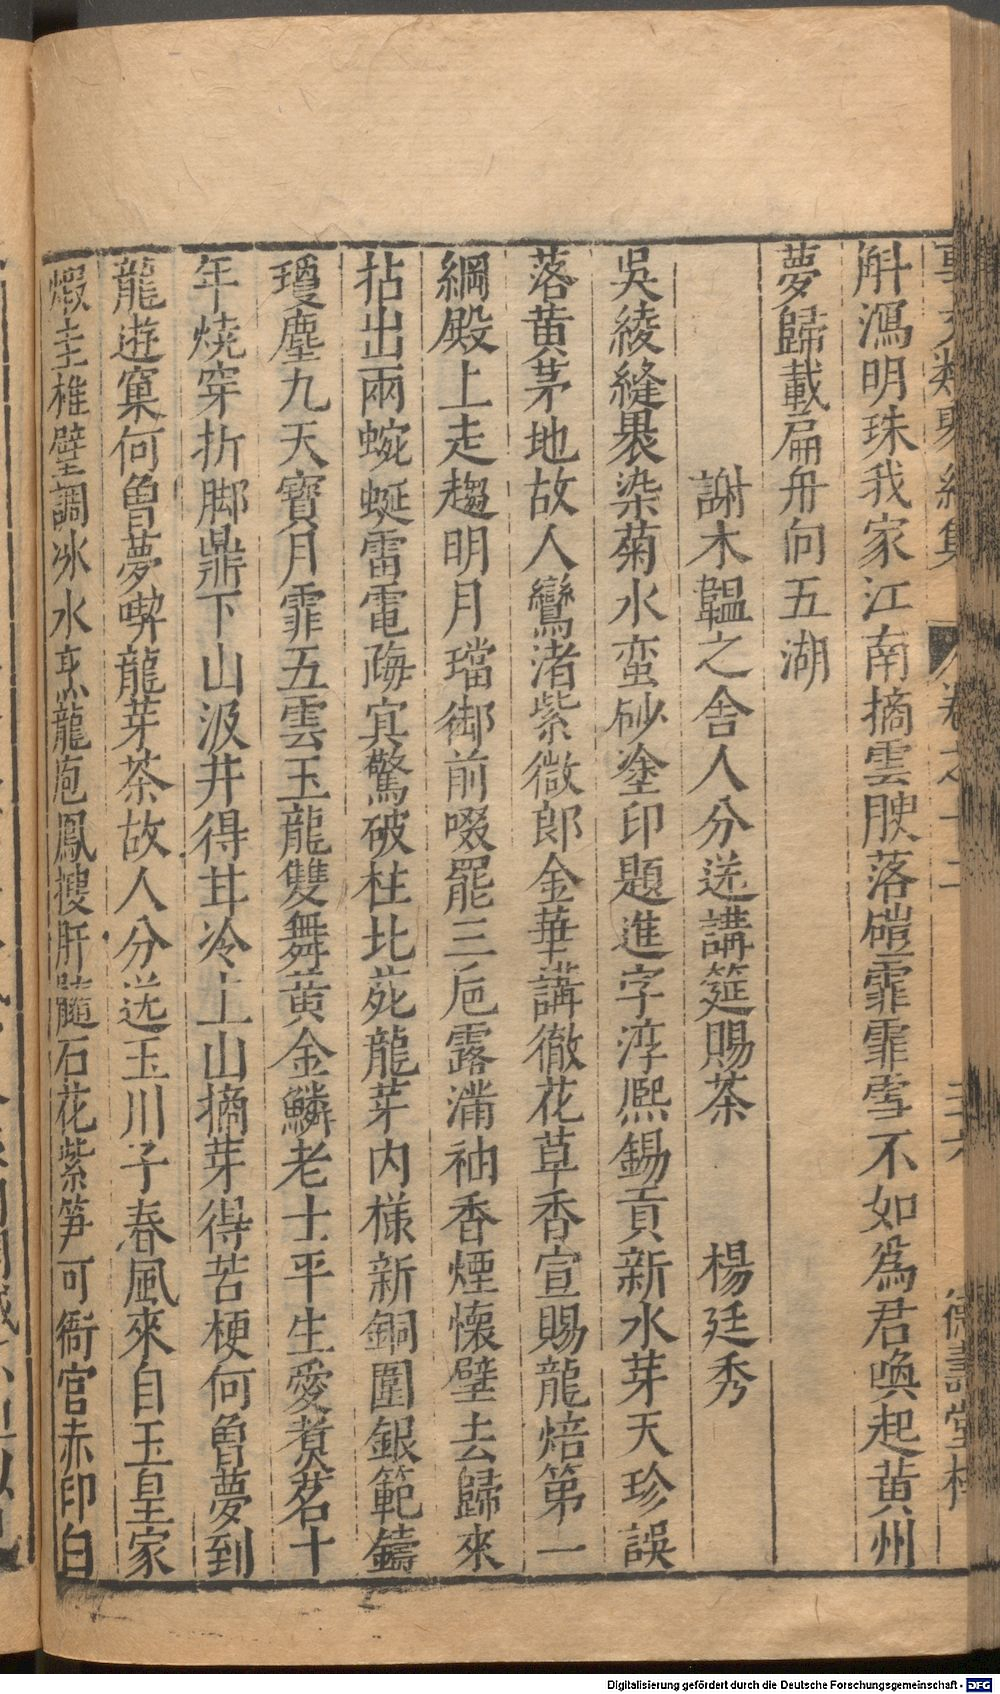 事文類聚續集 卷之十二 德壽堂梓
斛瀉明珠我家江南摘雲腴落磑霏霏雪不如為君喚起黄州
夢歸載扁舟向五湖
謝木韞之舍人分送講筵賜茶 楊廷秀
吳綾縫裹染菊水蛮砂塗印題進字淳熙錫貢新水芽天珍誤
落黄茅地故人鸞渚紫微郎金華講徹花草香宣賜龍焙第一
綱殿上走趨明月璫御前啜罷三巵露滿袖香煙懷璧去歸來
拈出兩蜿蜒雷電晦㝠驚破柱北苑龍芽内様新銅圍銀範鑄
瓊塵九天寶月霏五雲玉龍雙舞黄金鱗老士平生愛煮茗十
年燒穿折脚鼎下山汲井得甘冷上山摘芽得苦梗何曽夢到
龍遊窠何曽夢喫龍芽茶故人分送玉川子春風來自玉皇家
煆圭椎璧調冰水烹龍庖鳳搜肝髓石花紫笋可衙官赤印白
Digitalisierung gefördert durch die Deutsche Forschungsgemeinschaft - DFG